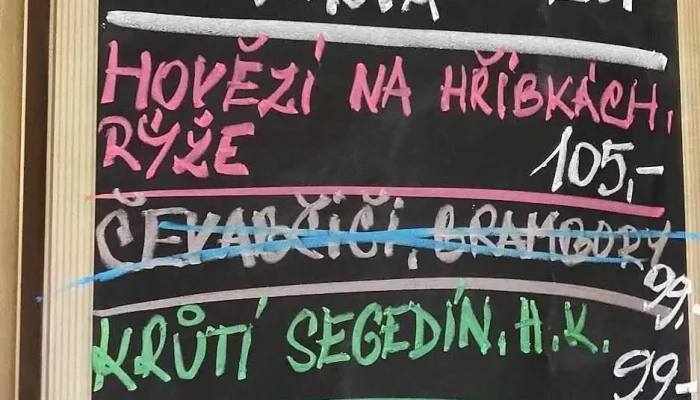 HOVĚZÍ NA HŘÍBKÁCH,
RÝŽE 105,-
ČEVABČIČI, BRAMBORY
99,-
KRŮTÍ SEGEDÍN, H.K.
99,-